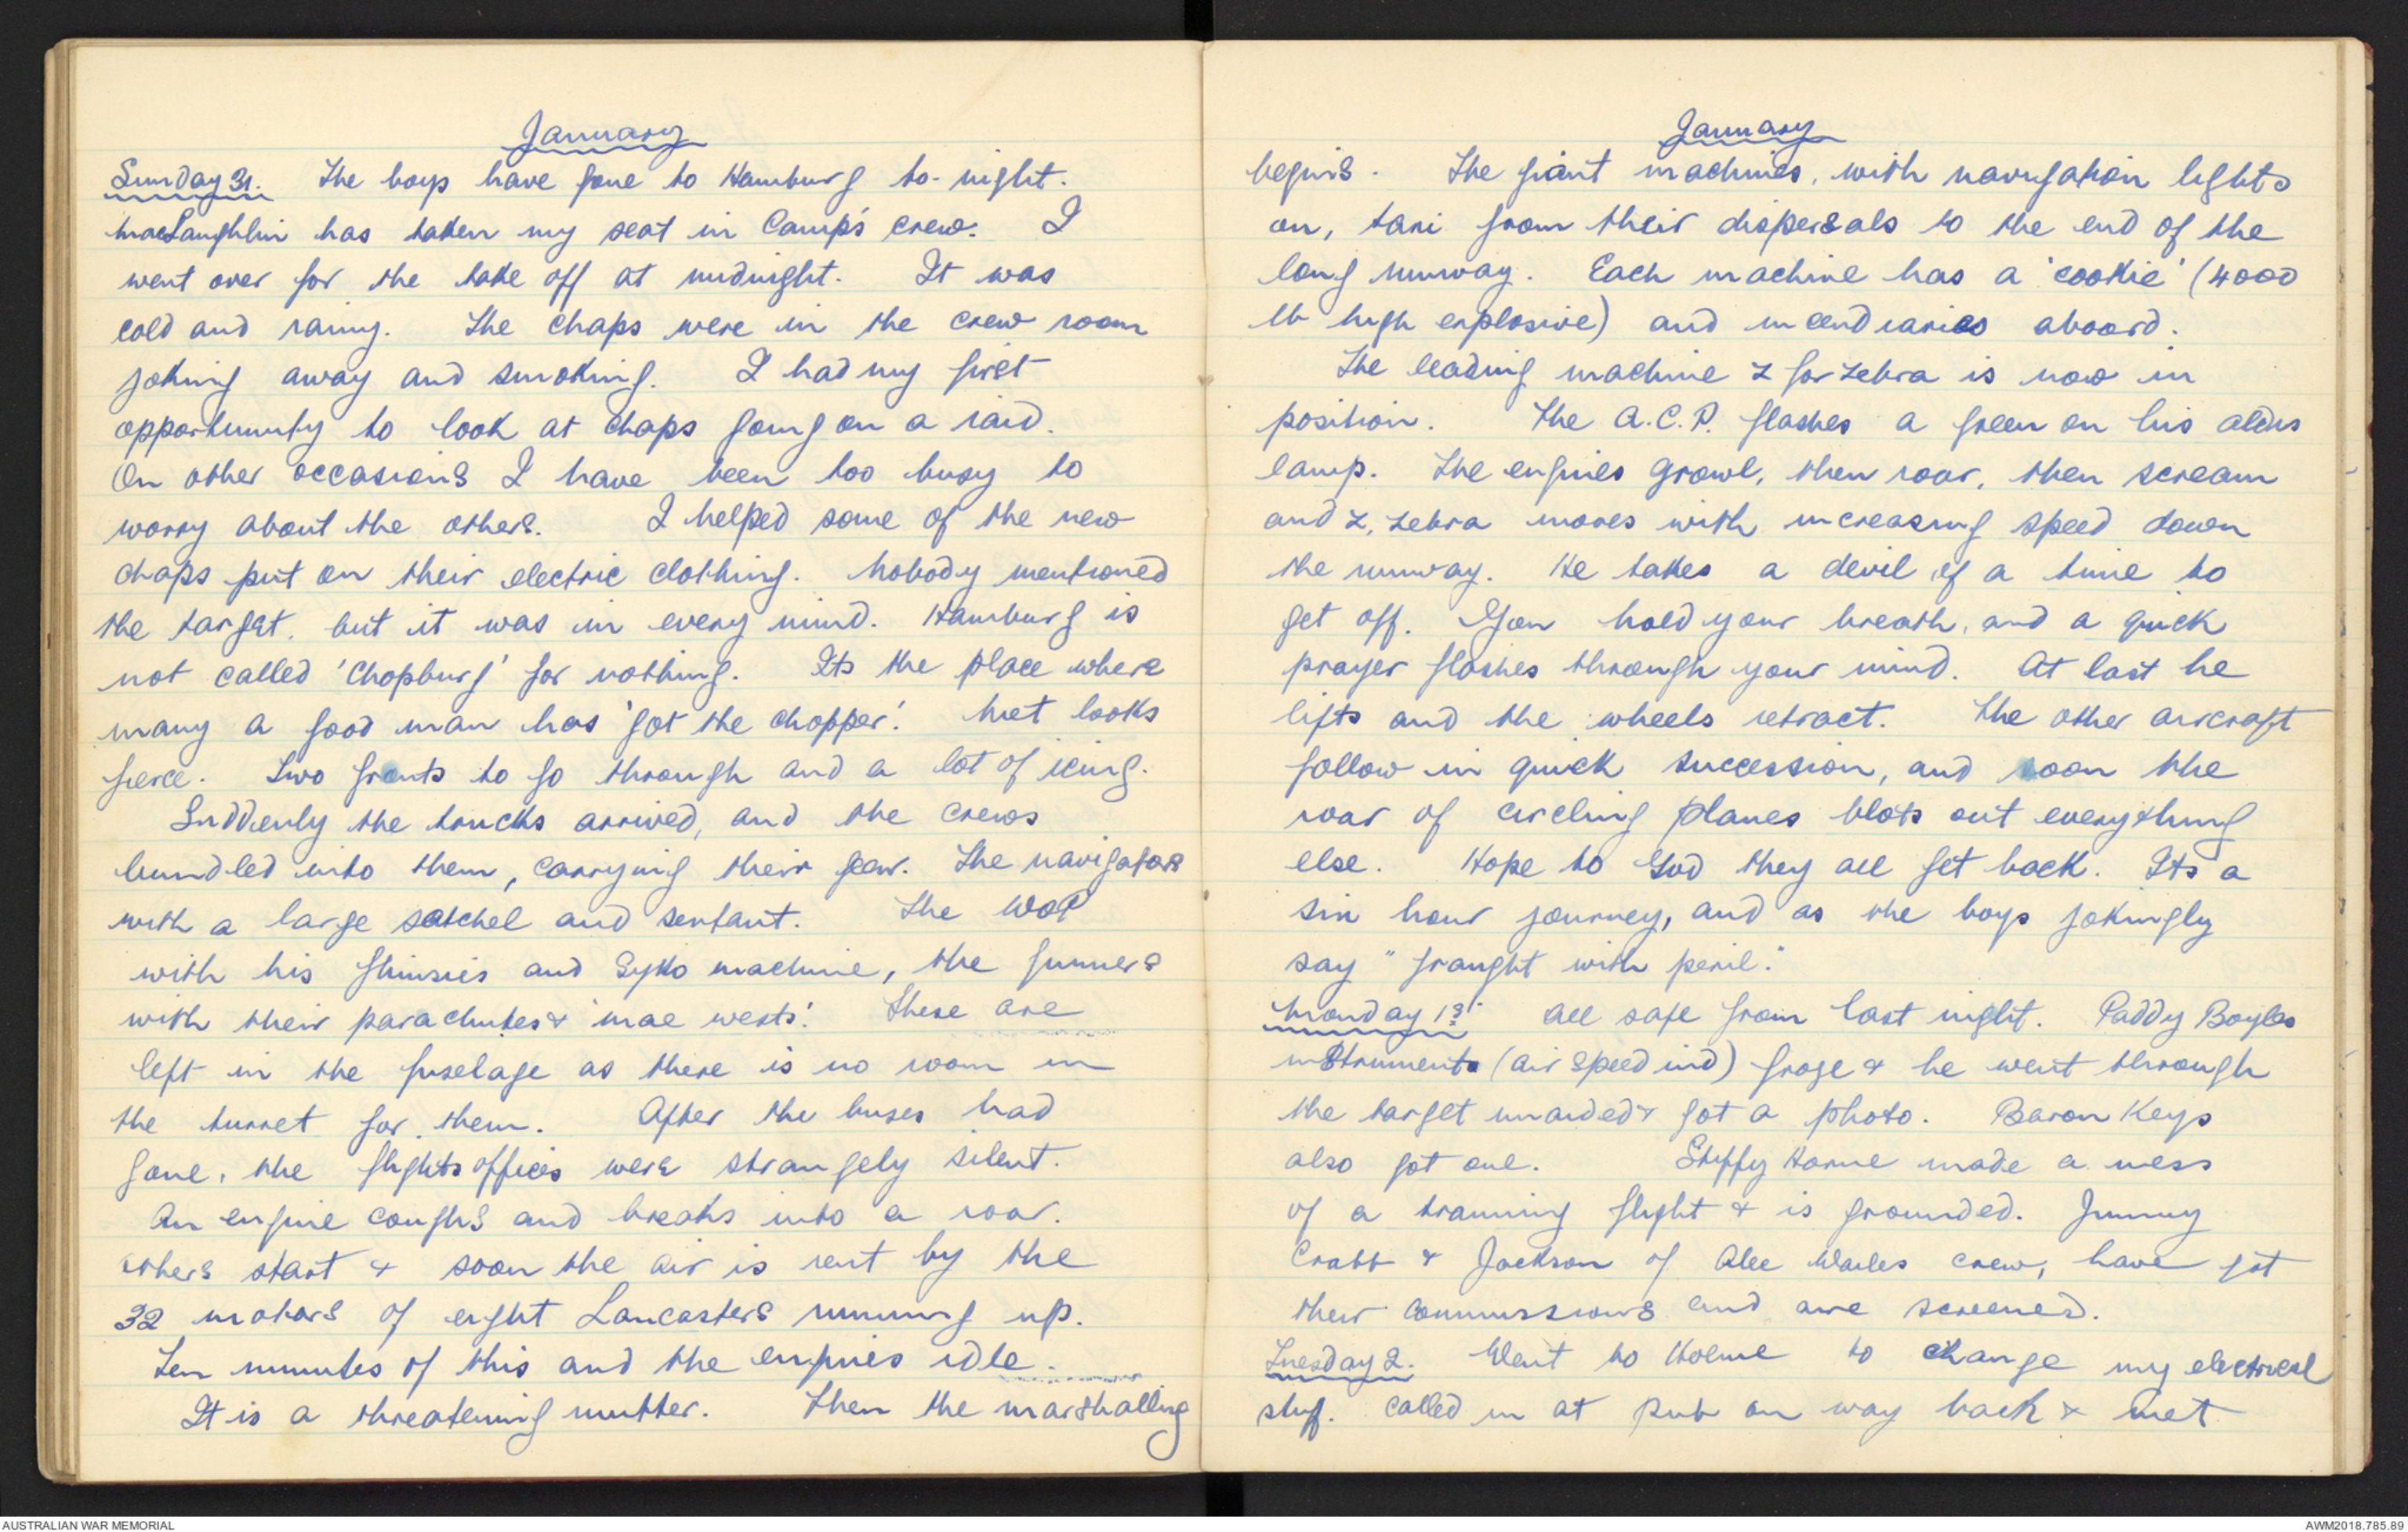 January
Sunday 31. The boys have gone to Hamburg to-night.
MacLaughlin has taken my seat in Camp's crew. I
went over for the take off at midnight. It was
cold and rainy. The chaps were in the crew room
joking away and smoking. I had my first
opportunity to look at chaps going on a raid.
On other occasions I have been too busy to
worry about the others. I helped some of the new
chaps put on their electric clothing. Nobody mentioned
the target, but it was in every mind. Hamburg is
not called 'Chopburg' for nothing. Its the place where
many a good man has 'got the chopper'. Met looks
fierce. Two fronts to go through and a lot of icing.
Suddenly the trucks arrived, and the crews
bundled into them, carrying their gear. The navigators
with a large satchel and sextant. The WOP
with his flimsies and Syko machine, the gunners
with their parachutes & 'mae wests'. These are
left in the fuselage as there is no room in
the turret for them. After the buses had
gone, the flights offices were strangely silent.
An engine coughs and breaks into a roar.
Others start & soon the air is rent by the
32 motors of eight Lancasters running up.
Ten minutes of this and the engines idle.
It is a threatening mutter. Then the marshalling
January
begins. The giant machines, with navigation lights
on, taxi from their dispersals to the end of the
long runway. Each machine has a 'cookie' (4000
lb high explosive) and incendiaries aboard.
The leading machine Z for Zebra is now in
position. The A.C.P. flashes a green on his aldis
lamp. The engines growl, then roar, then scream
and Z, Zebra moves with increasing speed down
the runway. He takes a devil of a time to
get off. You hold your breath, and a quick
prayer flashes through your mind. At last he
lifts and the wheels retract. The other aircraft
follow in quick succession, and soon the
roar of circling planes blots out everything
else. Hope to God they all get back. Its a
six hour journey, and as the boys jokingly
say "fraught with peril."
Monday 1st All safe from last night. Paddy Boyles
instruments (air speed ind) froze & he went through
the target unaided & got a photo. Baron Keys
also got one. Stiffy Horne made a mess
of a training flight & is grounded. Jimmy
Crabb & Jackson of Alec Wailes crew, have got
their commissions and are screened.
Tuesday 2. Went to Holme to change my electrical
stuff. Called in at pub on way back & met
AUSTRALIAN WAR MEMORIAL
AWM2018.785.89